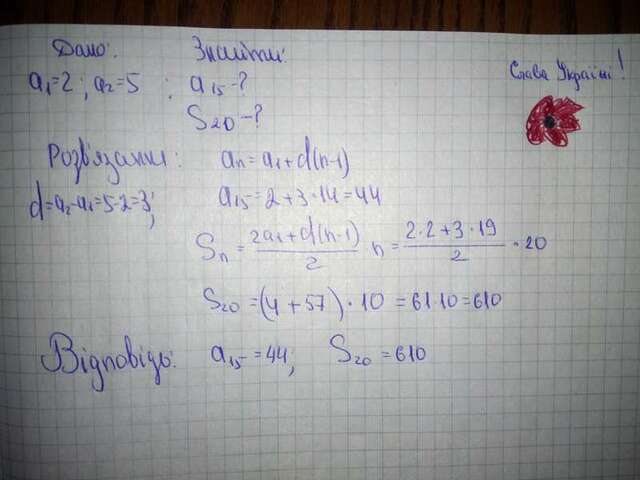 Дано: Знайти:
a₁=2; a₂=5; a₁₅-?
S₂₀-?
Слава Україні!
Розв'язання: aₙ=a₁+d(n-1)
d=a₂-a₁=5-2=3; a₁₅=2+3·14=44
Sₙ = (2a₁+d(n-1))/2 n = (2·2+3·19)/2 · 20
S₂₀=(4+57)·10=61·10=610
Відповідь: a₁₅=44; S₂₀=610